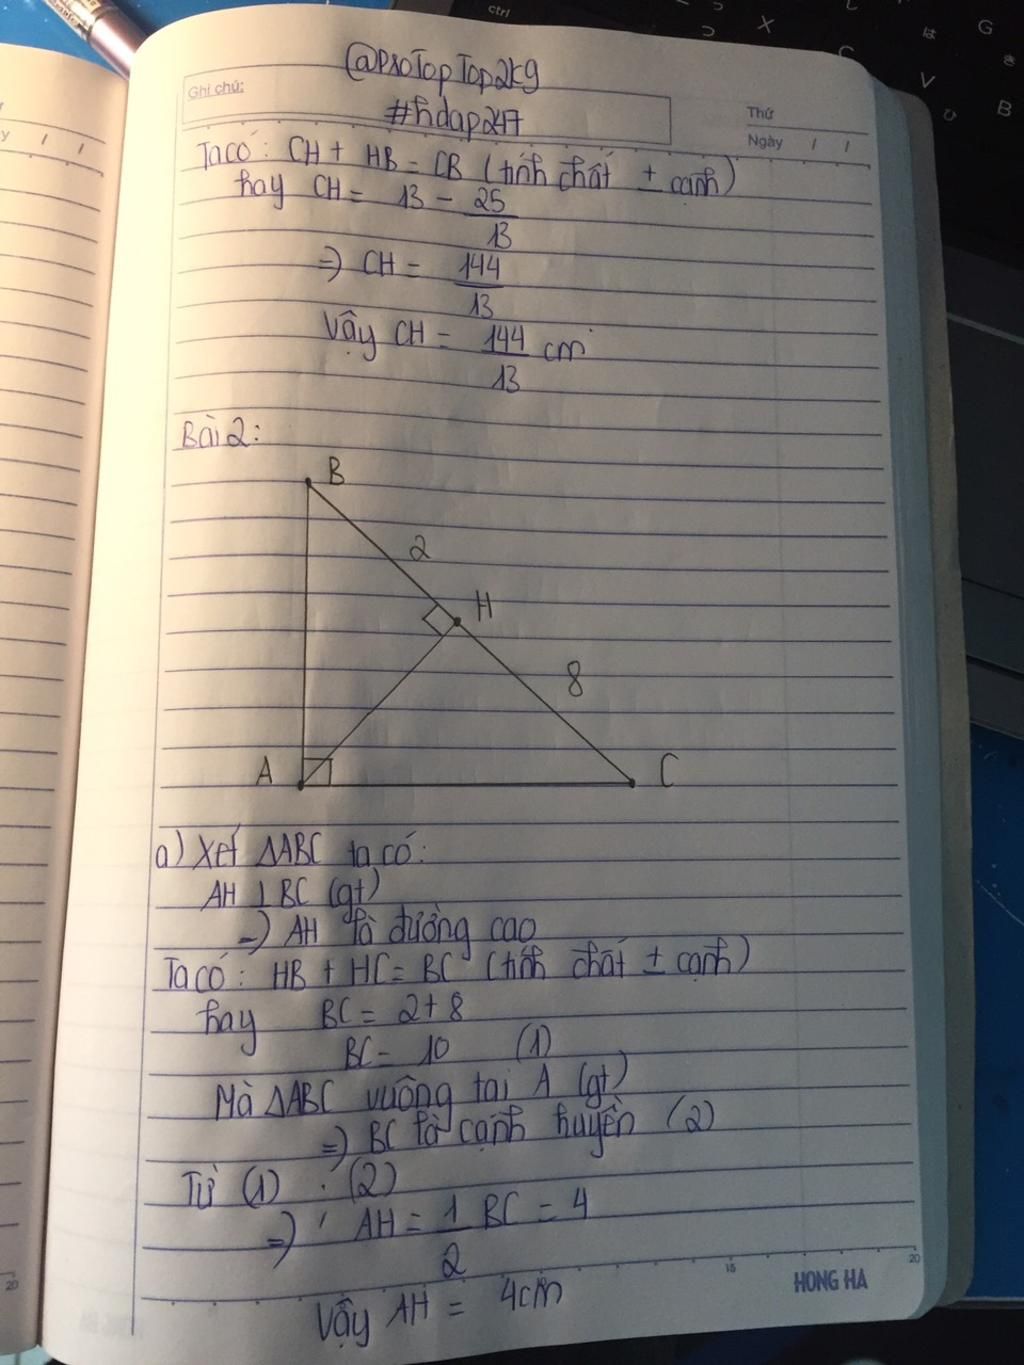 @ProTopTop2k9
Ghi chú:
#hdap247
Thứ
Ngày / /
Ta có: CH + HB = CB (tính chất ± cạnh)
hay CH = 13 - 25/13
=) CH = 144/13
Vậy CH = 144/13 cm
Bài 2:
B
2
H
8
A
C
a) Xét ΔABC ta có:
AH ⊥ BC (gt)
=) AH là đường cao
Ta có: HB + HC = BC (tính chất ± cạnh)
hay BC = 2+8
BC = 10 (1)
Mà ΔABC vuông tại A (gt)
=) BC là cạnh huyền (2)
Từ (1) . (2)
=) AH = 1/2 BC = 4
15
20
HONG HA
Vậy AH = 4cm
20
ctrl
X
C
V
B
G